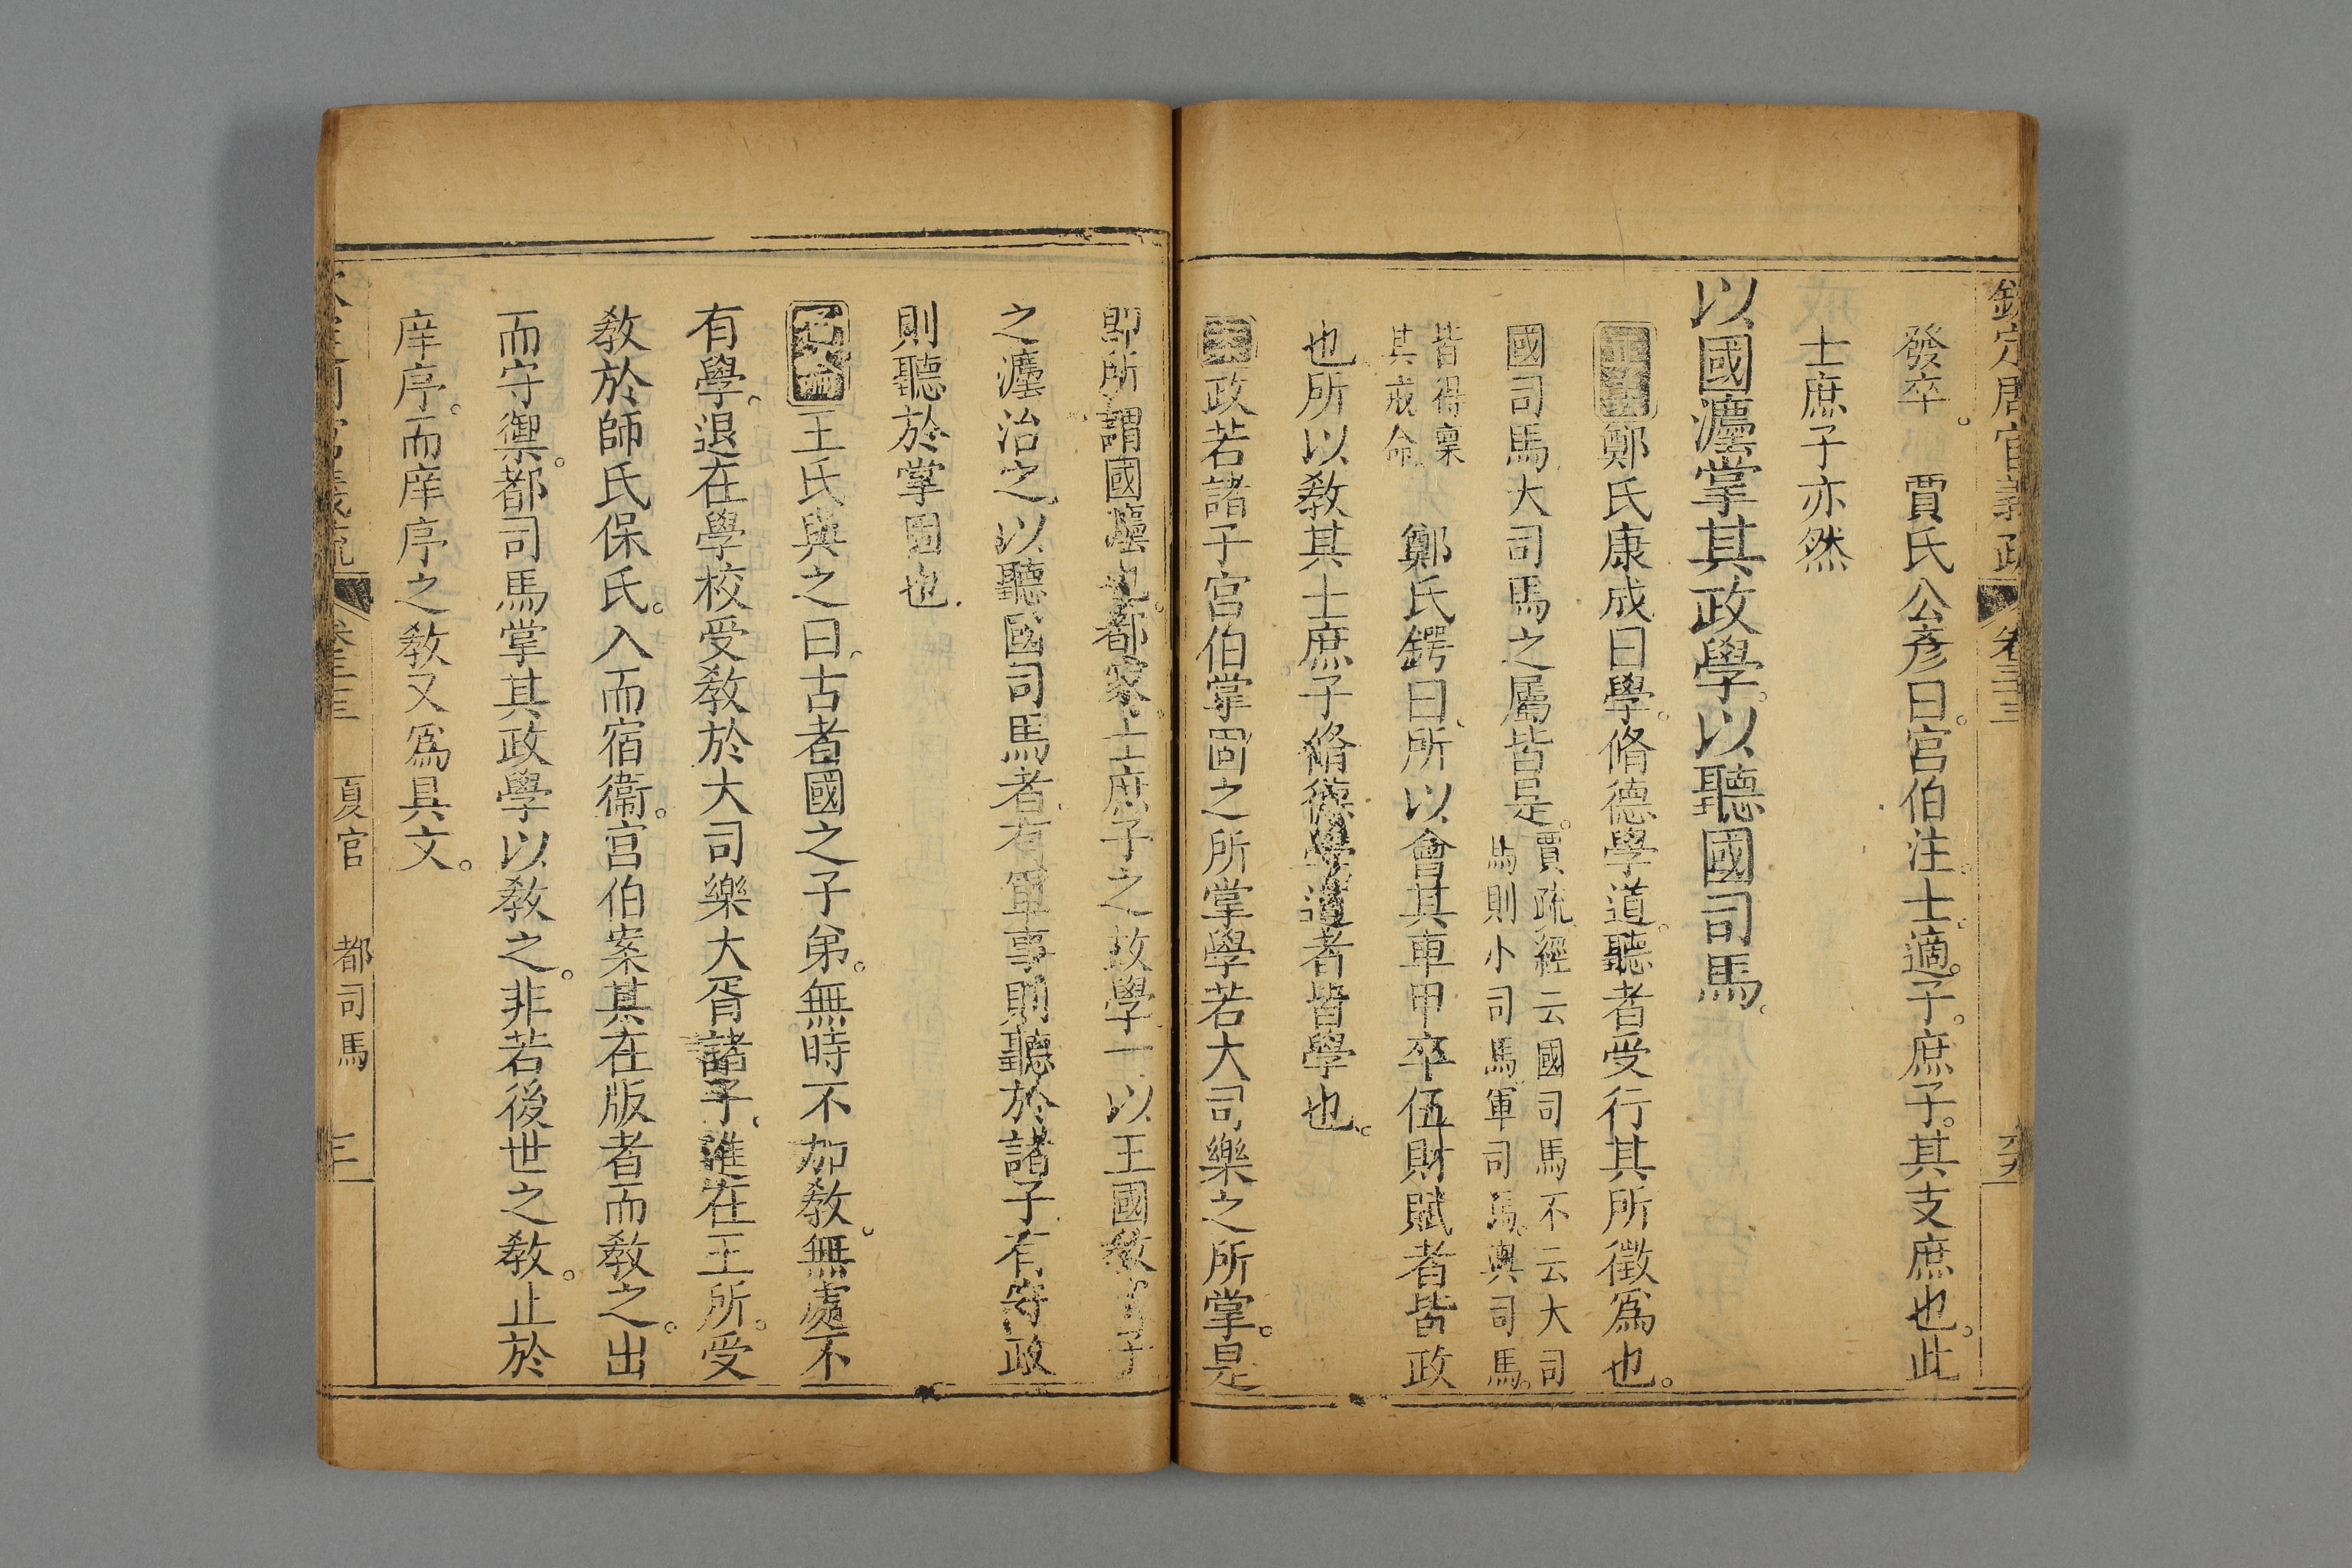 欽定周官義疏 卷三十三
發卒。 賈氏公彥曰。宮伯注。士。適子。庶子。其支庶也。此
士庶子亦然
以國灋掌其政學。以聽國司馬。
鄭氏康成曰學。脩德學道。聽者受行其所徵爲也。
國司馬大司馬之屬皆是。賈疏經云國司馬不云大司
馬則小司馬軍司馬輿司馬。
皆得稟
其戒令 鄭氏鍔曰、所以會其車甲卒伍財賦者皆政
也所以敎其士庶子脩德學道者皆學也。
政若諸子宮伯掌固之所掌學若大司樂之所掌。是
即所謂國灋也。都家士庶子之政學一以王國敎子
之灋治之。以聽國司馬者有軍事則聽於諸子有守政
則聽於掌固也
通論王氏與之曰古者國之子弟。無時不加敎。無處不
有學。退在學校受敎於大司樂大胥諸子、進在王所。受
敎於師氏保氏。入而宿衞。宮伯案其在版者而敎之。出
而守禦。都司馬掌其政學以敎之。非若後世之敎。止於
庠序。而庠序之敎又爲具文。
官義疏 卷三十三 夏官 都司馬